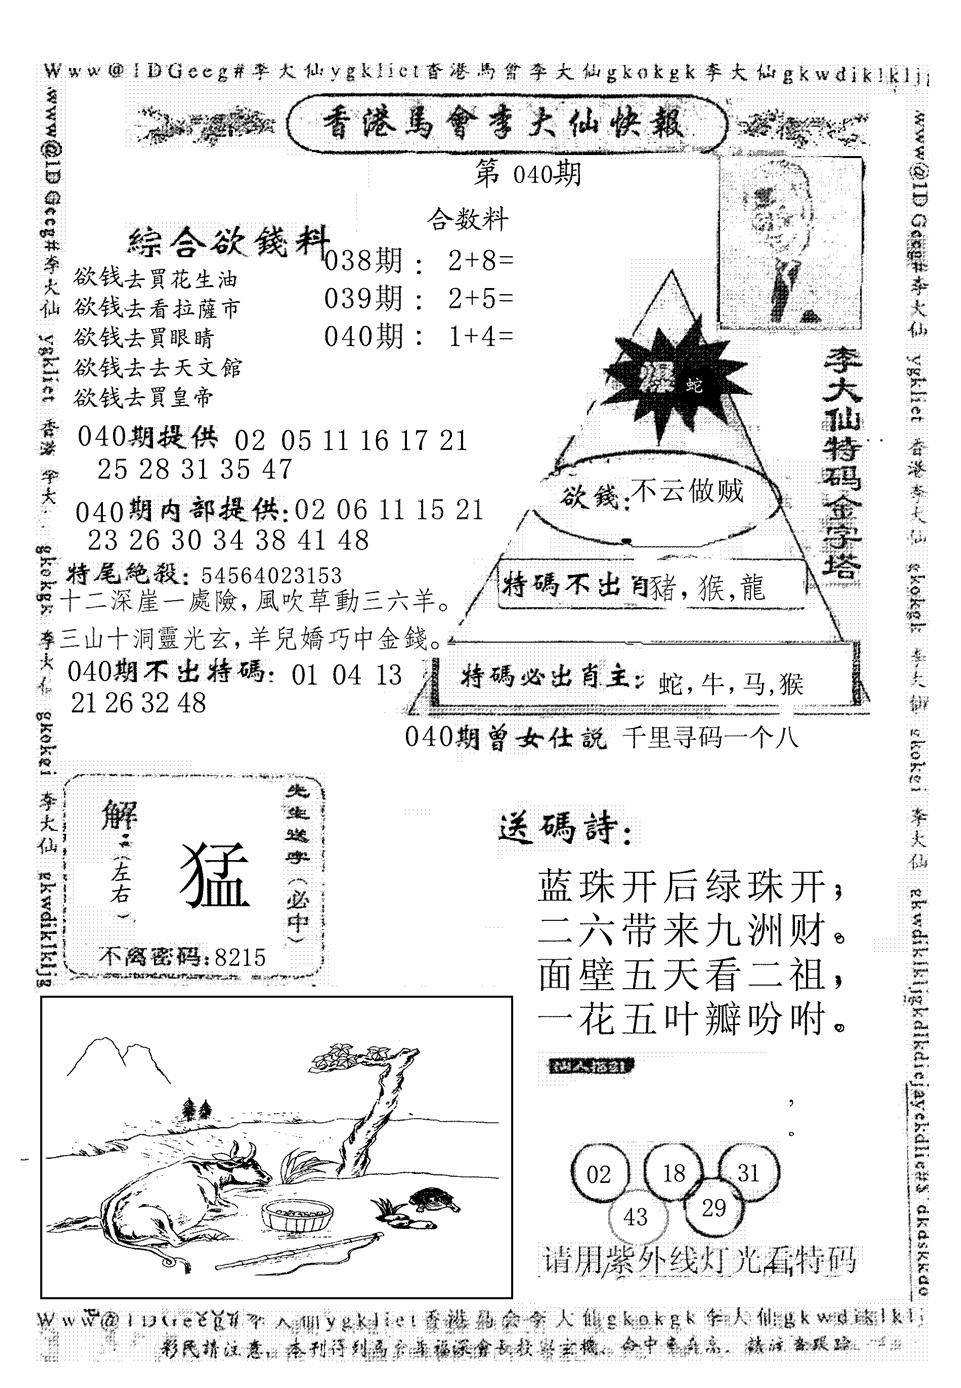 Www@1DGeeg#李大仙ygkliet香港馬會李大仙gkokgk李大仙gkwdiklkljg
香港馬會李大仙快報
第 040期
合数料
綜合欲錢料
038期： 2+8=
039期： 2+5=
040期： 1+4=
欲钱去買花生油
欲钱去看拉薩市
欲钱去買眼睛
欲钱去去天文館
欲钱去買皇帝
040期提供 02 05 11 16 17 21
25 28 31 35 47
040期内部提供:02 06 11 15 21
23 26 30 34 38 41 48
特尾絶殺: 54564023153
十二深崖一處險,風吹草動三六羊。
三山十洞靈光玄,羊兒嬌巧中金錢。
040期不出特碼: 01 04 13
21 26 32 48
爆 蛇
欲錢:不云做贼
特碼不出肖豬,猴,龍
特碼必出肖主: 蛇,牛,马,猴
李大仙特码金字塔
040期曾女仕説 千里寻码一个八
先生送字(必中)
解:(左右)
猛
不离密码:8215
送碼詩:
蓝珠开后绿珠开，
二六带来九洲财。
面壁五天看二祖，
一花五叶瓣吩咐。
，
。
02 18 31
43 29
请用紫外线灯光看特码
www@1DGeeg#李大仙 ygkliet 香港 李大 gkokgk 李大仙 gkokei 李大仙 gkwdiklkljg
www@1DGeeg#李大仙 ygkliet 香港李大仙 gkokgk 李大仙 gkokei 李大仙 gkwdiklkljgkdlkdiejayekdlie#$ dkdskkdo
Www@1DGeeg#李大仙ygkliet香港馬会李大仙gkokgk李大仙gkwdiklklj
彩民請注意,本刊得到馬会